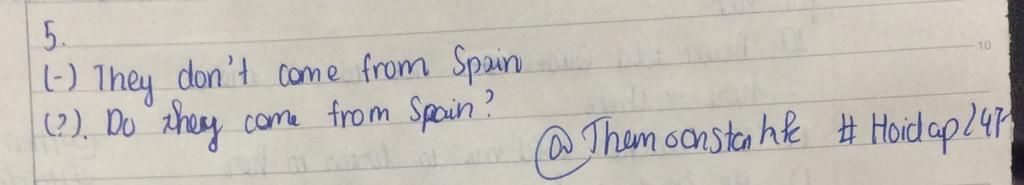 5.
(-) They don't come from Spain
(?). Do they come from Spain?
@Themsonstanhk # Hoidap247
10